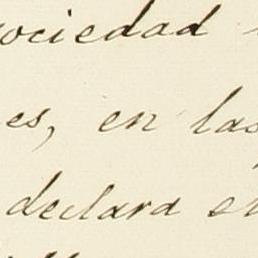 sociedad
es, en las
declara en